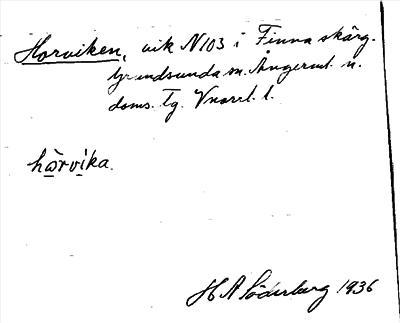 Horviken, vik N103 i Finna skärg.
Grundsunda sn. Ångerml. n.
doms. Tg. Vnorrl. l.
hårvika.
H A Söderberg 1936